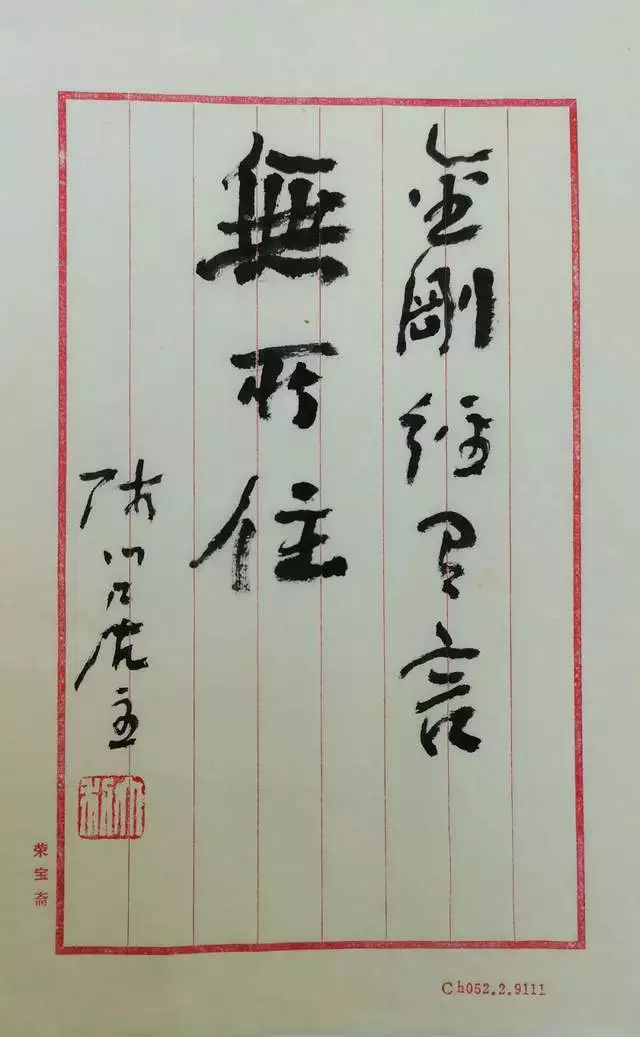 金剛經有言
無所住
庵主
荣宝斋
Ch052.2.9111